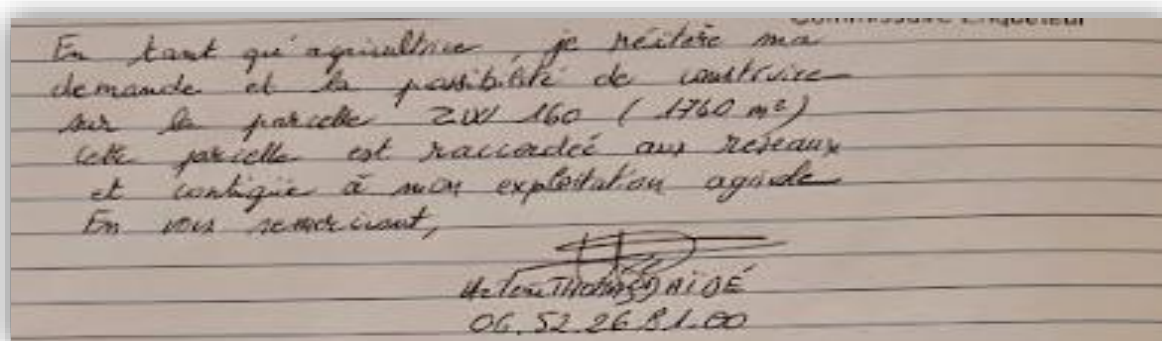 Commissaire Enquêteur
En tant qu'agricultrice, je réitère ma
demande et la possibilité de construire
sur la parcelle ZW 160 (1760 m²)
cette parcelle est raccordée aux réseaux
et contigüe à mon exploitation agricole
En vous remerciant,
THOMAS DAIDÉ
06.52.26.81.00